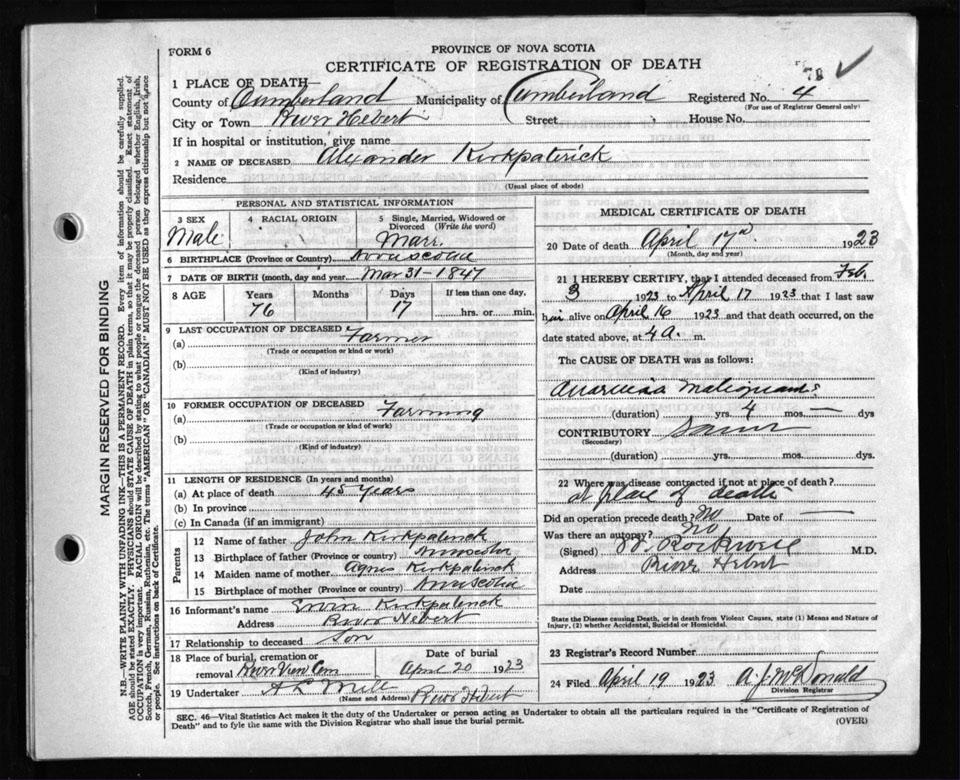 FORM 6
PROVINCE OF NOVA SCOTIA
CERTIFICATE OF REGISTRATION OF DEATH
78 ✓
1 PLACE OF DEATH—
County of Cumberland Municipality of Cumberland Registered No. 4
(For use of Registrar General only)
City or Town River Hebert Street House No.
If in hospital or institution, give name
2 NAME OF DECEASED Alexander Kirkpaterick
Residence
(Usual place of abode)
PERSONAL AND STATISTICAL INFORMATION
3 SEX Male
4 RACIAL ORIGIN
5 Single, Married, Widowed or Divorced (Write the word) Marr.
6 BIRTHPLACE (Province or Country) Novascotia
7 DATE OF BIRTH (month, day and year) Mar 31 - 1847
8 AGE Years Months Days If less than one day,
76 17 hrs. or min.
9 LAST OCCUPATION OF DECEASED
(a) Farmer
(Trade or occupation or kind or work)
(b)
(Kind of industry)
10 FORMER OCCUPATION OF DECEASED
(a) Farming
(Trade or occupation or kind or work)
(b)
(Kind of industry)
11 LENGTH OF RESIDENCE (In years and months)
(a) At place of death 45 Years
(b) In province
(c) In Canada (if an immigrant)
Parents
12 Name of father John Kirkpatrick
13 Birthplace of father (Province or country) Novascotia
14 Maiden name of mother Agnes Kirkpatrick
15 Birthplace of mother (Province or country) Novascotia
16 Informant's name Ervin Kirkpatrick
Address River Hebert
17 Relationship to deceased Son
18 Place of burial, cremation or removal River View Cem Date of burial April 20 1923
19 Undertaker (Name and Address) River Hebert
MEDICAL CERTIFICATE OF DEATH
20 Date of death April 17th 1923
(Month, day and year)
21 I HEREBY CERTIFY, that I attended deceased from Feb.
3 1923 to April 17 1923 that I last saw
him alive on April 16 1923 and that death occurred, on the
date stated above, at 4 a. m.
The CAUSE OF DEATH was as follows:
(duration) yrs. 4 mos. — dys
CONTRIBUTORY Same
(Secondary)
(duration) yrs. mos. dys.
22 Where was disease contracted if not at place of death?
at place of death
Did an operation precede death? No Date of —
Was there an autopsy? No
(Signed) Rockwell M.D.
Address River Hebert
Date
State the Disease causing Death, or in death from Violent Causes, state (1) Means and Nature of Injury, (2) whether Accidental, Suicidal or Homicidal.
23 Registrar's Record Number
24 Filed April 19 1923 A. J. McDonald
Division Registrar
SEC. 46—Vital Statistics Act makes it the duty of the Undertaker or person acting as Undertaker to obtain all the particulars required in the "Certificate of Registration of
Death" and to fyle the same with the Division Registrar who shall issue the burial permit. (OVER)
MARGIN RESERVED FOR BINDING
N.B.—WRITE PLAINLY WITH UNFADING INK—THIS IS A PERMANENT RECORD. Every item of information should be carefully supplied.
AGE should be stated EXACTLY. PHYSICIANS should STATE CAUSE OF DEATH in plain terms, so that it may be properly classified. Exact statement of
OCCUPATION is very important. RACIAL ORIGIN will be described by stating to what people or tongue the deceased person belonged whether English, Irish,
Scotch, French, German, Russian, Ruthenian, etc. The terms "AMERICAN" or "CANADIAN" MUST NOT BE USED as they express citizenship but not race
or people. See instructions on back of Certificate.